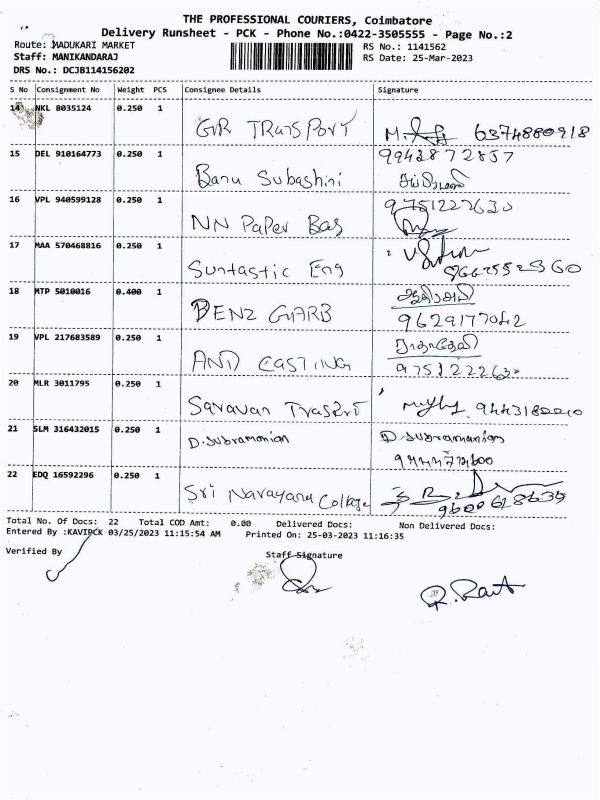 THE PROFESSIONAL COURIERS, Coimbatore
Delivery Runsheet - PCK - Phone No.:0422-3505555 - Page No.:2
Route: MADUKARI MARKET RS No.: 1141562
Staff: MANIKANDARAJ RS Date: 25-Mar-2023
DRS No.: DCJB114156202
S No Consignment No Weight PCS Consignee Details Signature
14 NKL 8035124 0.250 1
GVR TRansPORT 6374880918
15 DEL 910164773 0.250 1 9942872857
Banu Subashini
16 VPL 940599128 0.250 1 9751222630
NN PaPer Bag
17 MAA 570468816 0.250 1
Suntastic Eng
18 MTP 5010016 0.400 1
BENZ GARB 9629177042
19 VPL 217683589 0.250 1
AND CASTING
20 MLR 3011795 0.250 1
Saravan
21 SLM 316432015 0.250 1
D.subramanian D.subramanian
22 EDQ 16592296 0.250 1
Sri Narayana College
Total No. Of Docs: 22 Total COD Amt: 0.00 Delivered Docs: Non Delivered Docs:
Entered By :KAVIPCK 03/25/2023 11:15:54 AM Printed On: 25-03-2023 11:16:35
Verified By Staff Signature